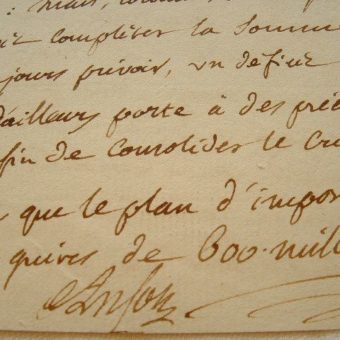 : mais,
completter la Somme
jours prévoir, un defini
d'ailleurs porte à des pré
fin de Consolider le Cr
que le plan d'impo
quires de 600. mill
Anson